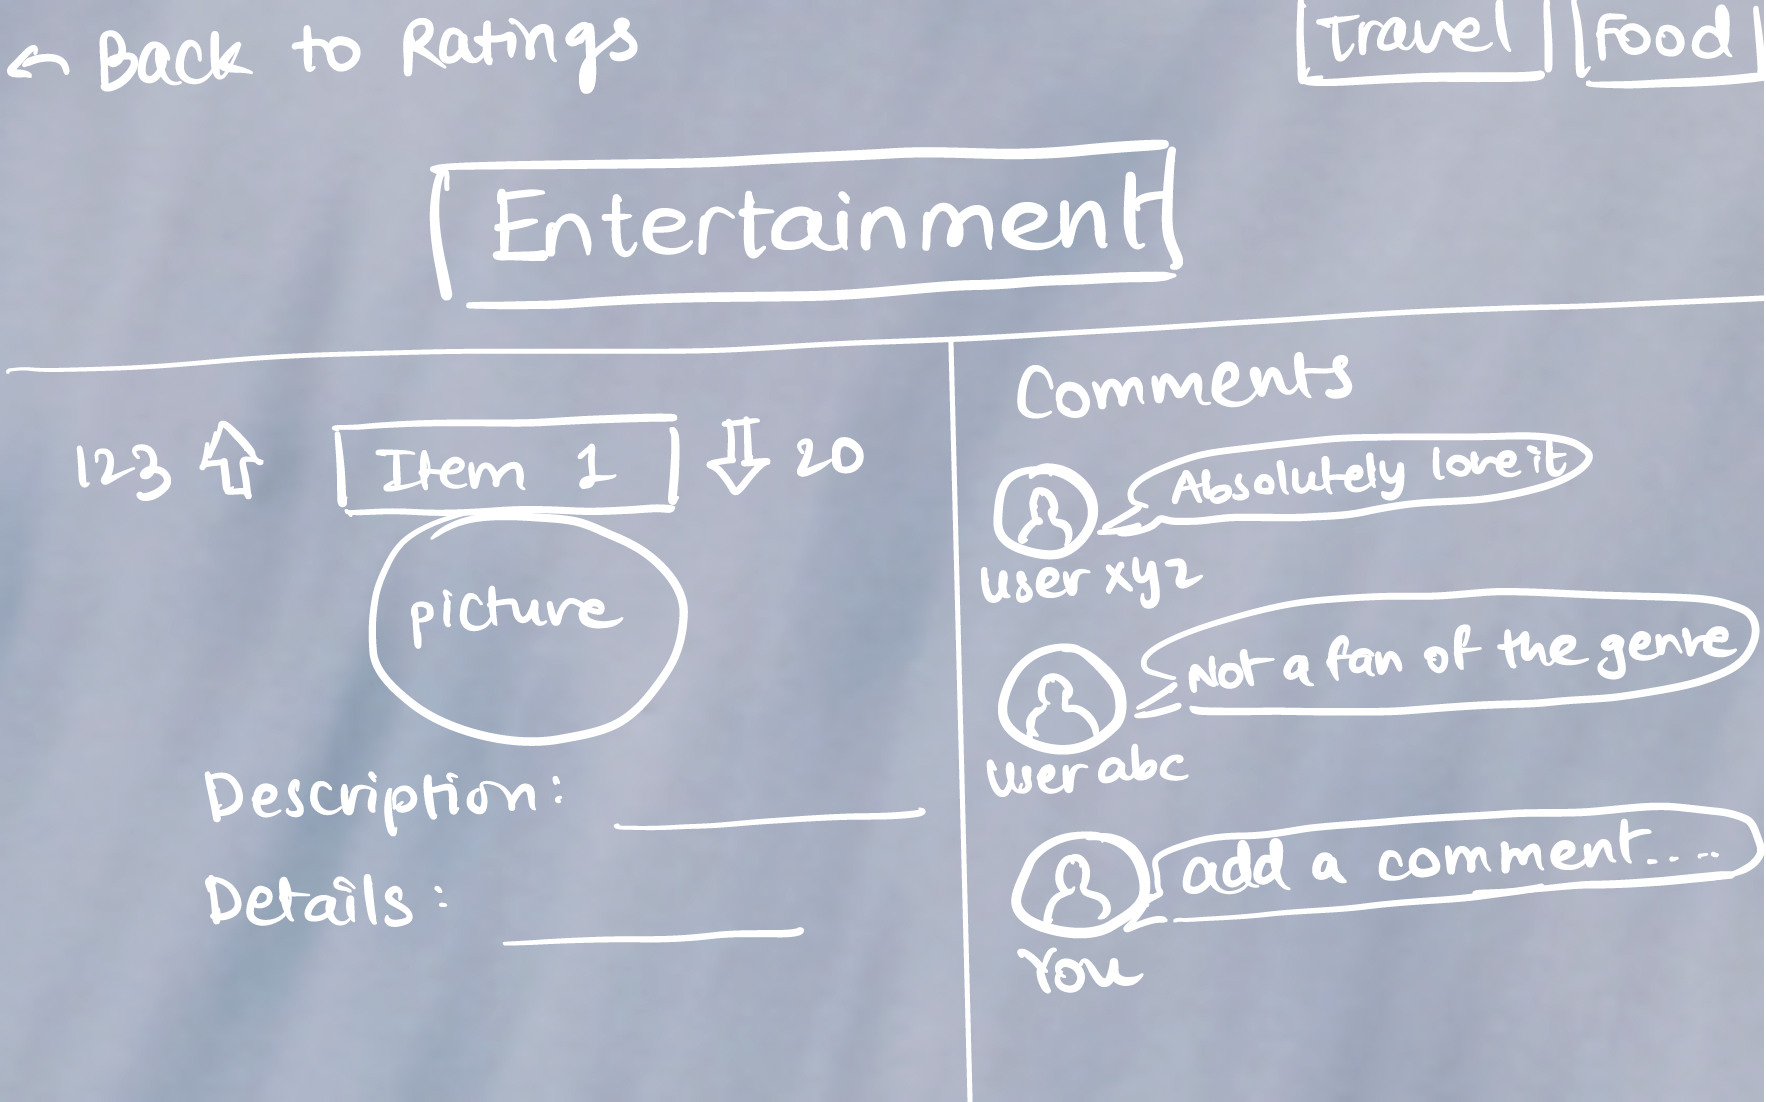 ← Back to Ratings
Travel
Food
Entertainment
123
Item 1
20
picture
Description:
Details:
Comments
Absolutely love it
user xyz
Not a fan of the genre
user abc
add a comment.....
You